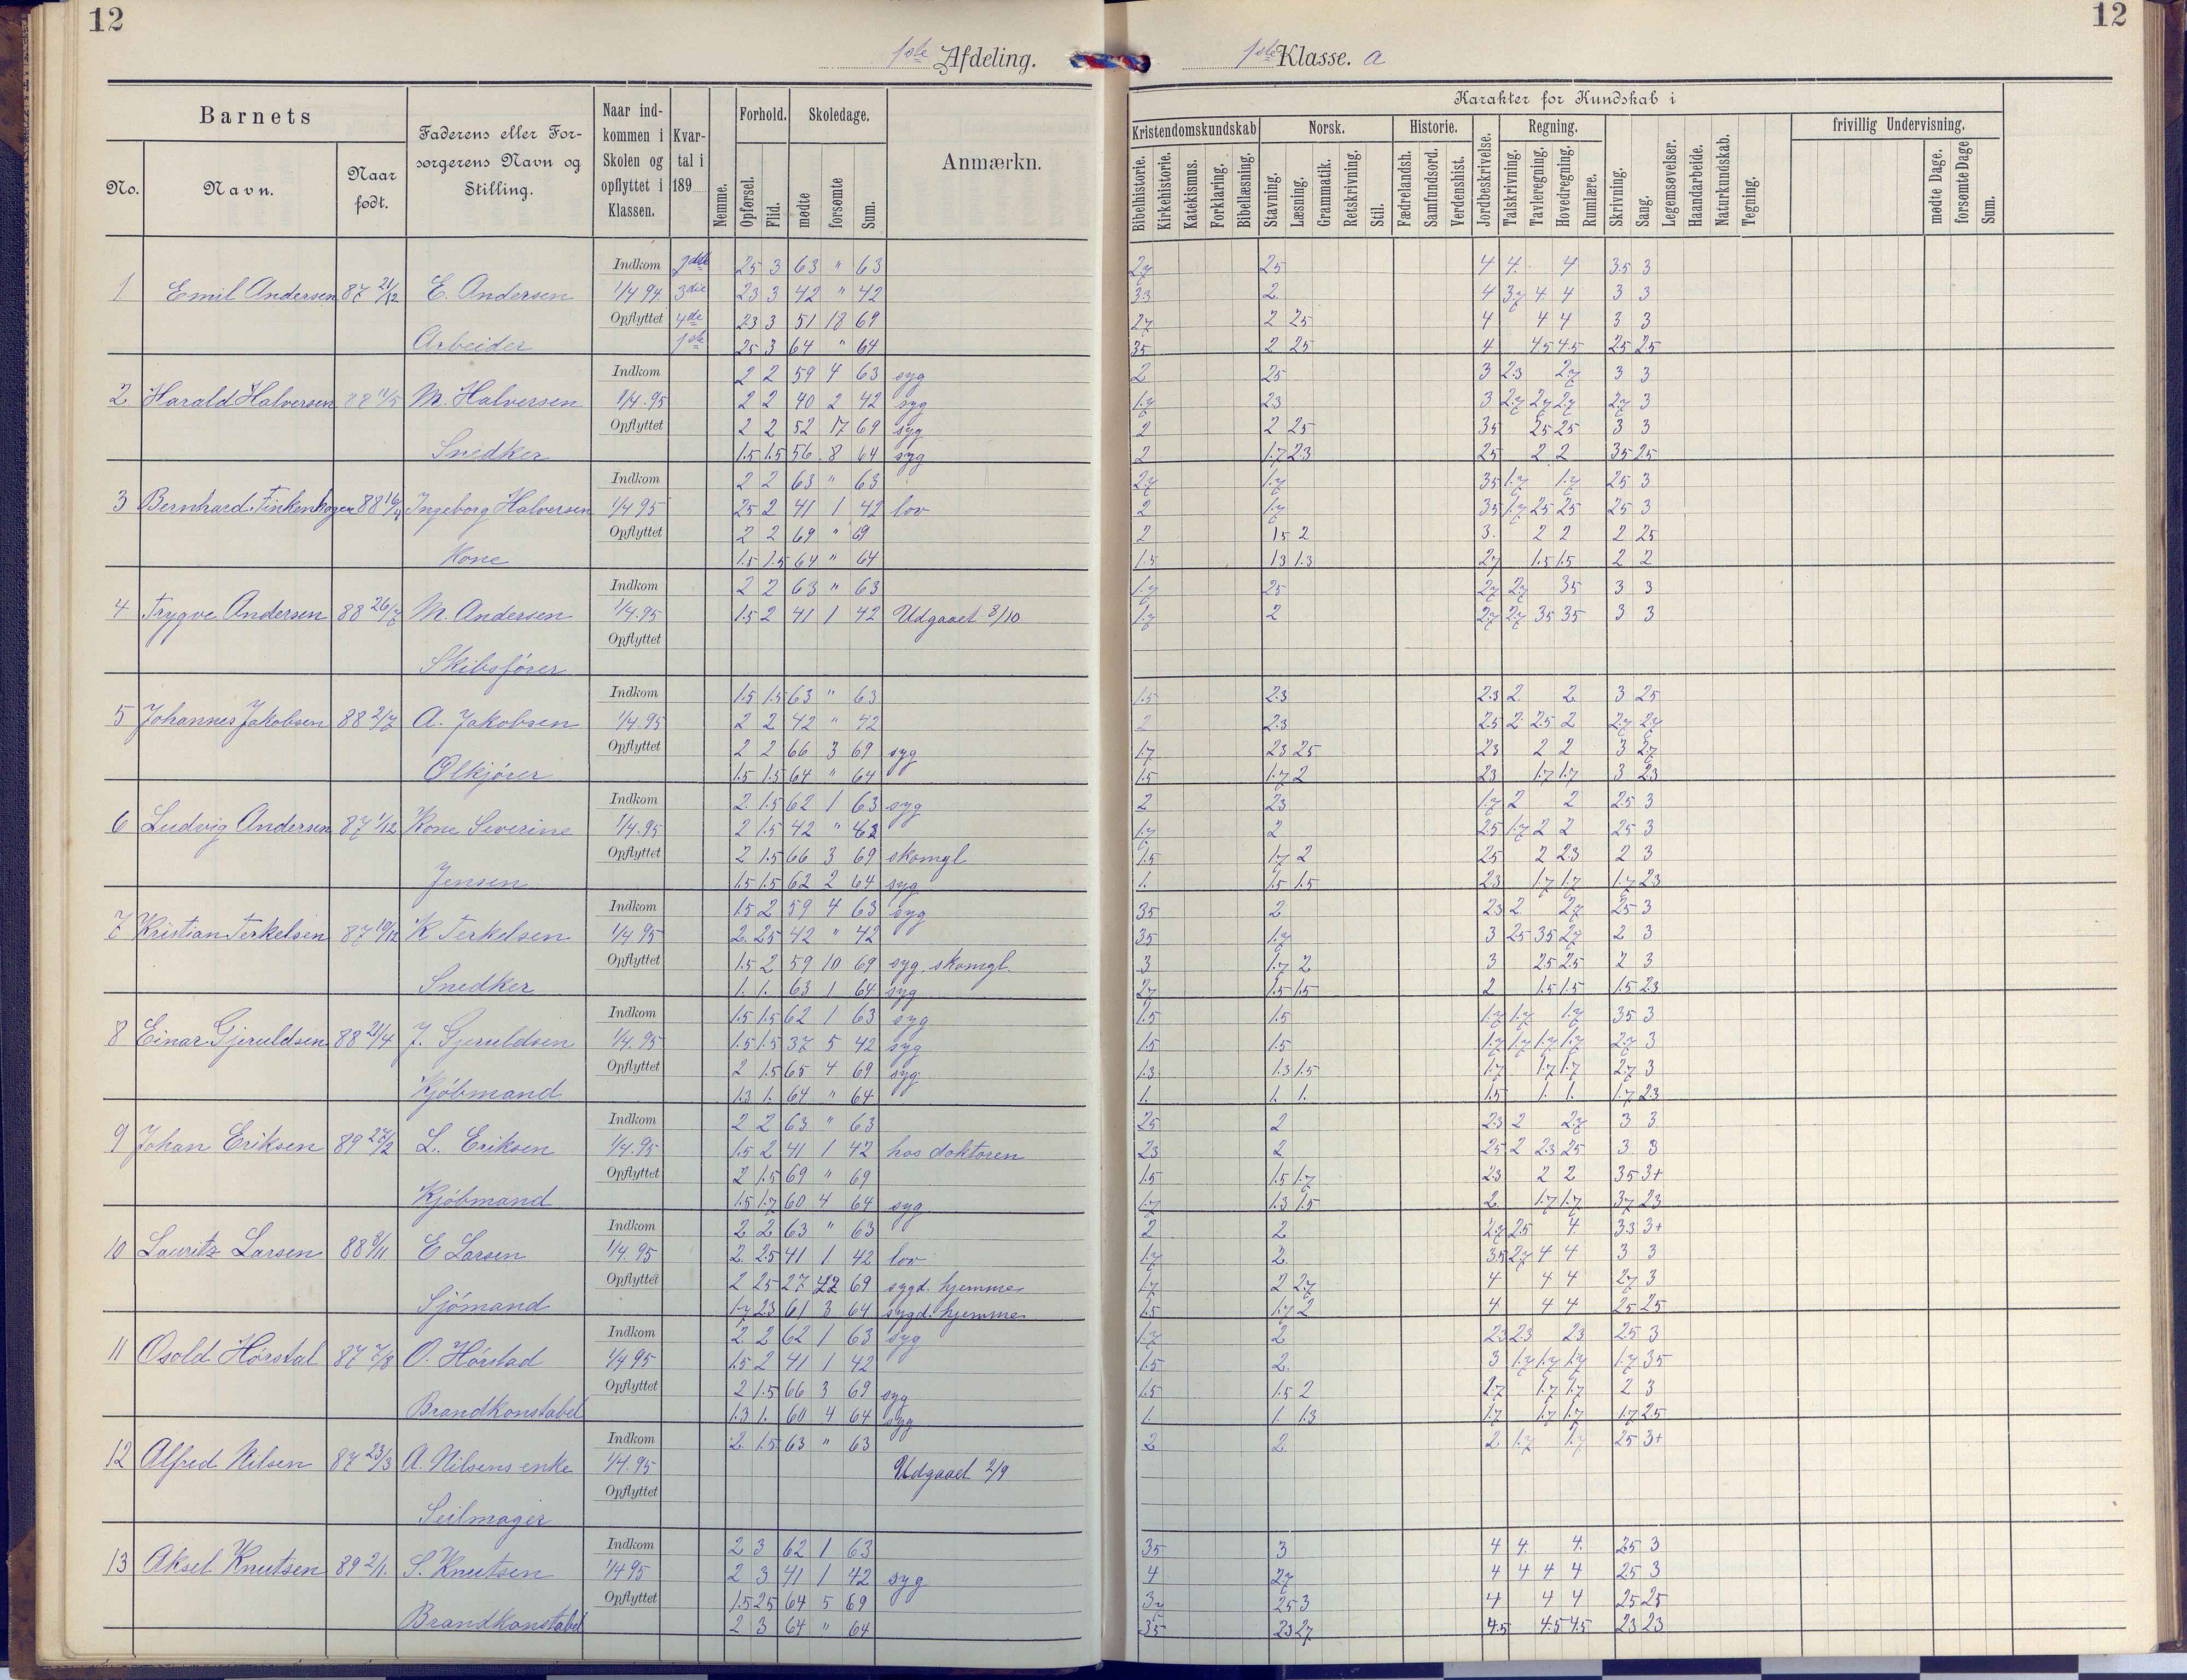 12
12
1ste Afdeling.
1ste Klasse. a
Barnets
No.
Navn.
Naar født.
Faderens eller Forsørgerens Navn og Stilling.
Naar indkommen i Skolen og opflyttet i Klassen.
Kvartal i 189
Nemme.
Forhold.
Opførsel.
Flid.
Skoledage.
mødte
forsømte
Sum.
Anmærkn.
Karakter for Kundskab i
Kristendomskundskab
Bibelhistorie.
Kirkehistorie.
Katekismus.
Forklaring.
Bibellæsning.
Norsk.
Stavning.
Læsning.
Grammatik.
Retskrivning.
Stil.
Historie.
Fædrelandsh.
Samfundsord.
Verdenshist.
Jordbeskrivelse.
Regning.
Talskrivning.
Tavleregning.
Hovedregning.
Rumlære.
Skrivning.
Sang.
Legemsøvelser.
Haandarbeide.
Naturkundskab.
Tegning.
frivillig Undervisning.
mødte Dage.
forsømte Dage
Sum.
Indkom 2det 25 3 63 " 63 27 25 4 4. 4 35 3
1 Emil Andersen 87 21/12 E. Andersen 1/4 94. 3die 23 3 42 " 42 33 2. 4 37 4 4 3 3
Opflyttet 4de 23 3 51 18 69 27 2 25 4 4 4 3 3
Arbeider 1ste 25 3 64 " 64 35 2 25 4 45 45 25 25
Indkom 2 2 59 4 63 syg 2 25 3 23 27 3 3
2 Harald Halversen 88 11/5 M. Halversen 1/4.95 2 2 40 2 42 syg 1.7 23 3 27 27 27 27 3
Opflyttet 2 2 52 17 69 syg 2 2 25 35 25 25 3 3
Snedker 1.5 1.5 56 8 64 syg 2 1.7 23 25 2 2 35 25
Indkom 2 2 63 " 63 27 1.7 35 1.7 1.7 25 3
3 Bernhard Finkenhagen 88 16/4 Ingeborg Halversen 1/4 95 25 2 41 1 42 lov 2 1.7 35 1.7 25 25 25 3
Opflyttet 2 2 69 " 69 2 15 2 3. 2 2 2 25
Kone 1.5 1.5 64 " 64 1.5 13 1.3 27 1.5 1.5 2 2
Indkom 2 2 63 " 63 1.7 25 27 27 35 3 3
4 Trygve Andersen 88 26/7 M. Andersen 1/4.95 1.5 2 41 1 42 Udgaaet 8/10 1.7 2 27 27 35 35 3 3
Opflyttet
Skibsfører
Indkom 1.5 1.5 63 " 63 1.5 2.3 2.3 2. 2 3 25
5 Johannes Jakobsen 88 2/7 A. Jakobsen 1/4.95 2 2 42 " 42 2 2.3 2.5 2 25 2 27 27
Opflyttet 2 2 66 3 69 syg 1.7 23 25 23 2 2 3 27
Ølkjører 1.5 1.5 64 " 64 1.5 1.7 2 23 1.7 1.7 3 23
Indkom 2. 1.5 62 1 63 syg 2 23 1.7 2 2 2.5 3
6 Ludvig Andersen 87 1/12 Kone Severine 1/4.95 2 1.5 42 " 42 1.7 2 2.5 1.7 2 2 25 3
Opflyttet 2 1.5 66 3 69 skomgl 1.5 1.7 2 25 2 23 2 3
Jensen 1.5 1.5 62 2 64 syg 1. 1.5 1.5 23 1.7 1.7 1.7 23
Indkom 1.5 2 59 4 63 syg 35 2 23 2 27 25 3
7 Kristian Terkelsen 87 19/12 K Terkelsen 1/4.95 2. 25 42 " 42 35 1.7 3 25 35 27 2 3
Opflyttet 1.5 2 59 10 69 syg, skomgl. 3 1.7 2 3 25 2.5 2 3
Snedker 1. 1. 63 1 64 syg 27 1.5 1.5 2 1.5 1.5 1.5 23
Indkom 1.5 1.5 62 1 63 syg 1.5 1.5 1.7 1.7 1.7 35 3
8 Einar Gjeruldsen 88 21/4 J. Gjeruldsen 1/4.95 1.5 1.5 37 5 42 syg 1.5 1.5 1.7 1.7 1.7 1.7 27 3
Opflyttet 2 1.5 65 4 69 syg 1.3 1.3 1.5 1.7 1.7 1.7 2.7 3
Kjøbmand 1.3 1. 64 " 64 1. 1. 1. 1.5 1. 1. 1.7 23
Indkom 2 2 63 " 63 25 2 2.3 2 27 3 3
9 Johan Eriksen 89 27/2 L. Eriksen 1/4.95 1.5 2 41 1 42 hos doktoren 23 2 25 2 23 25 3 3
Opflyttet 2 1.5 69 " 69 1.5 1.5 1.7 23 2 2 35 3+
Kjøbmand 1.5 1.7 60 4 64 syg 1.7 1.3 1.5 2. 1.7 1.7 37 23
Indkom 2 2 63 " 63 2 2 27 25 4. 33 3+
10 Lauritz Larsen 88 8/11 E Larsen 1/4.95 2. 2.5 41 1 42 lov 1.7 2. 35 27 4 4 3 3
Opflyttet 2 25 27 42 69 sygd. hjemme 1.7 2 27 4 4 4 27 3
Sjømand 1.7 23 61 3 64 sygd. hjemme 1.5 1.7 2 4. 4 4 25 25
Indkom 2. 2 62 1 63 syg 1.7 2 23 23 23 2.5 3
11 Osold Hørstal 87 7/8 O. Hørstad 1/4 95 1.5 2 41 1 42 1.5 2. 3 1.7 1.7 1.7 1.7 35
Opflyttet 2 1.5 66 3 69 syg 1.5 1.5 2 27 1.7 1.7 2 3
Brandkonstabel 1.3 1. 60 4 64 syg 1. 1. 1.3 1.7 1.7 1.7 1.7 2.5
Indkom 2. 1.5 63 " 63 2 2 2 1.7 1.7 25 3+
12 Alfred Nilsen 87 23/3 A. Nilsens enke 1/4.95 Udgaaet 2/9
Opflyttet
Seilmager
Indkom 2 3 62 1 63 35 3 4 4. 4. 25 3
13 Aksel Knutsen 89 2/1. S. Knutsen 1/4 95 2 3 41 1 42 syg 4 27 4 4 4 4 2.5 3
Opflyttet 1.5 25 64 5 69 37 25 3 4 4 4 25 25
Brandkonstabel 2 3 64 " 64 35 23 27 4.5 4.5 4.5 23 23